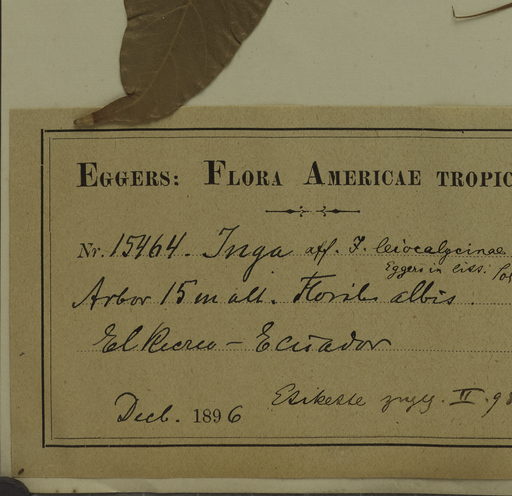 EGGERS: FLORA AMERICAE TROPIC
Nr. 15464. Inga aff. I. leiocalycinae
Eggers in litt.
Arbor 15 m alt. Floribs albis.
El Recreo - Ecuador
Decb. 1896
II. 98